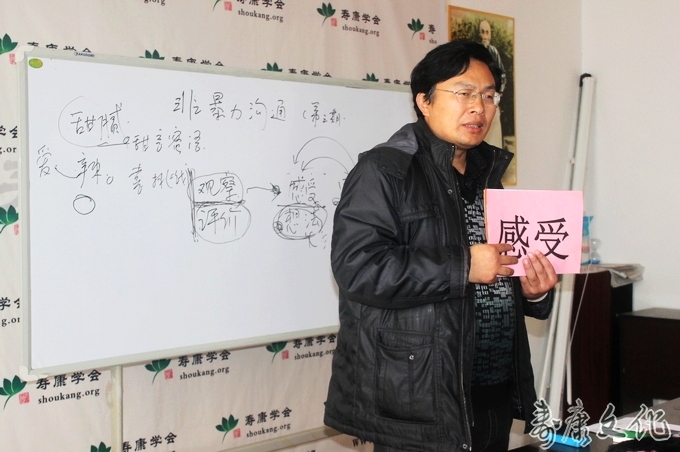 寿康学会
shoukang.org
寿康学会
shoukang.org
寿康学会
shoukang.org
非暴力沟通(第三期)
甜腻
甜言蜜语
爱
观察
感受
评价
想法
感受
寿康学会
shoukang.org
寿康学会
shoukang.org
寿康学会
shoukang.org
寿康学会
shoukang.org
寿康学会
寿康文化